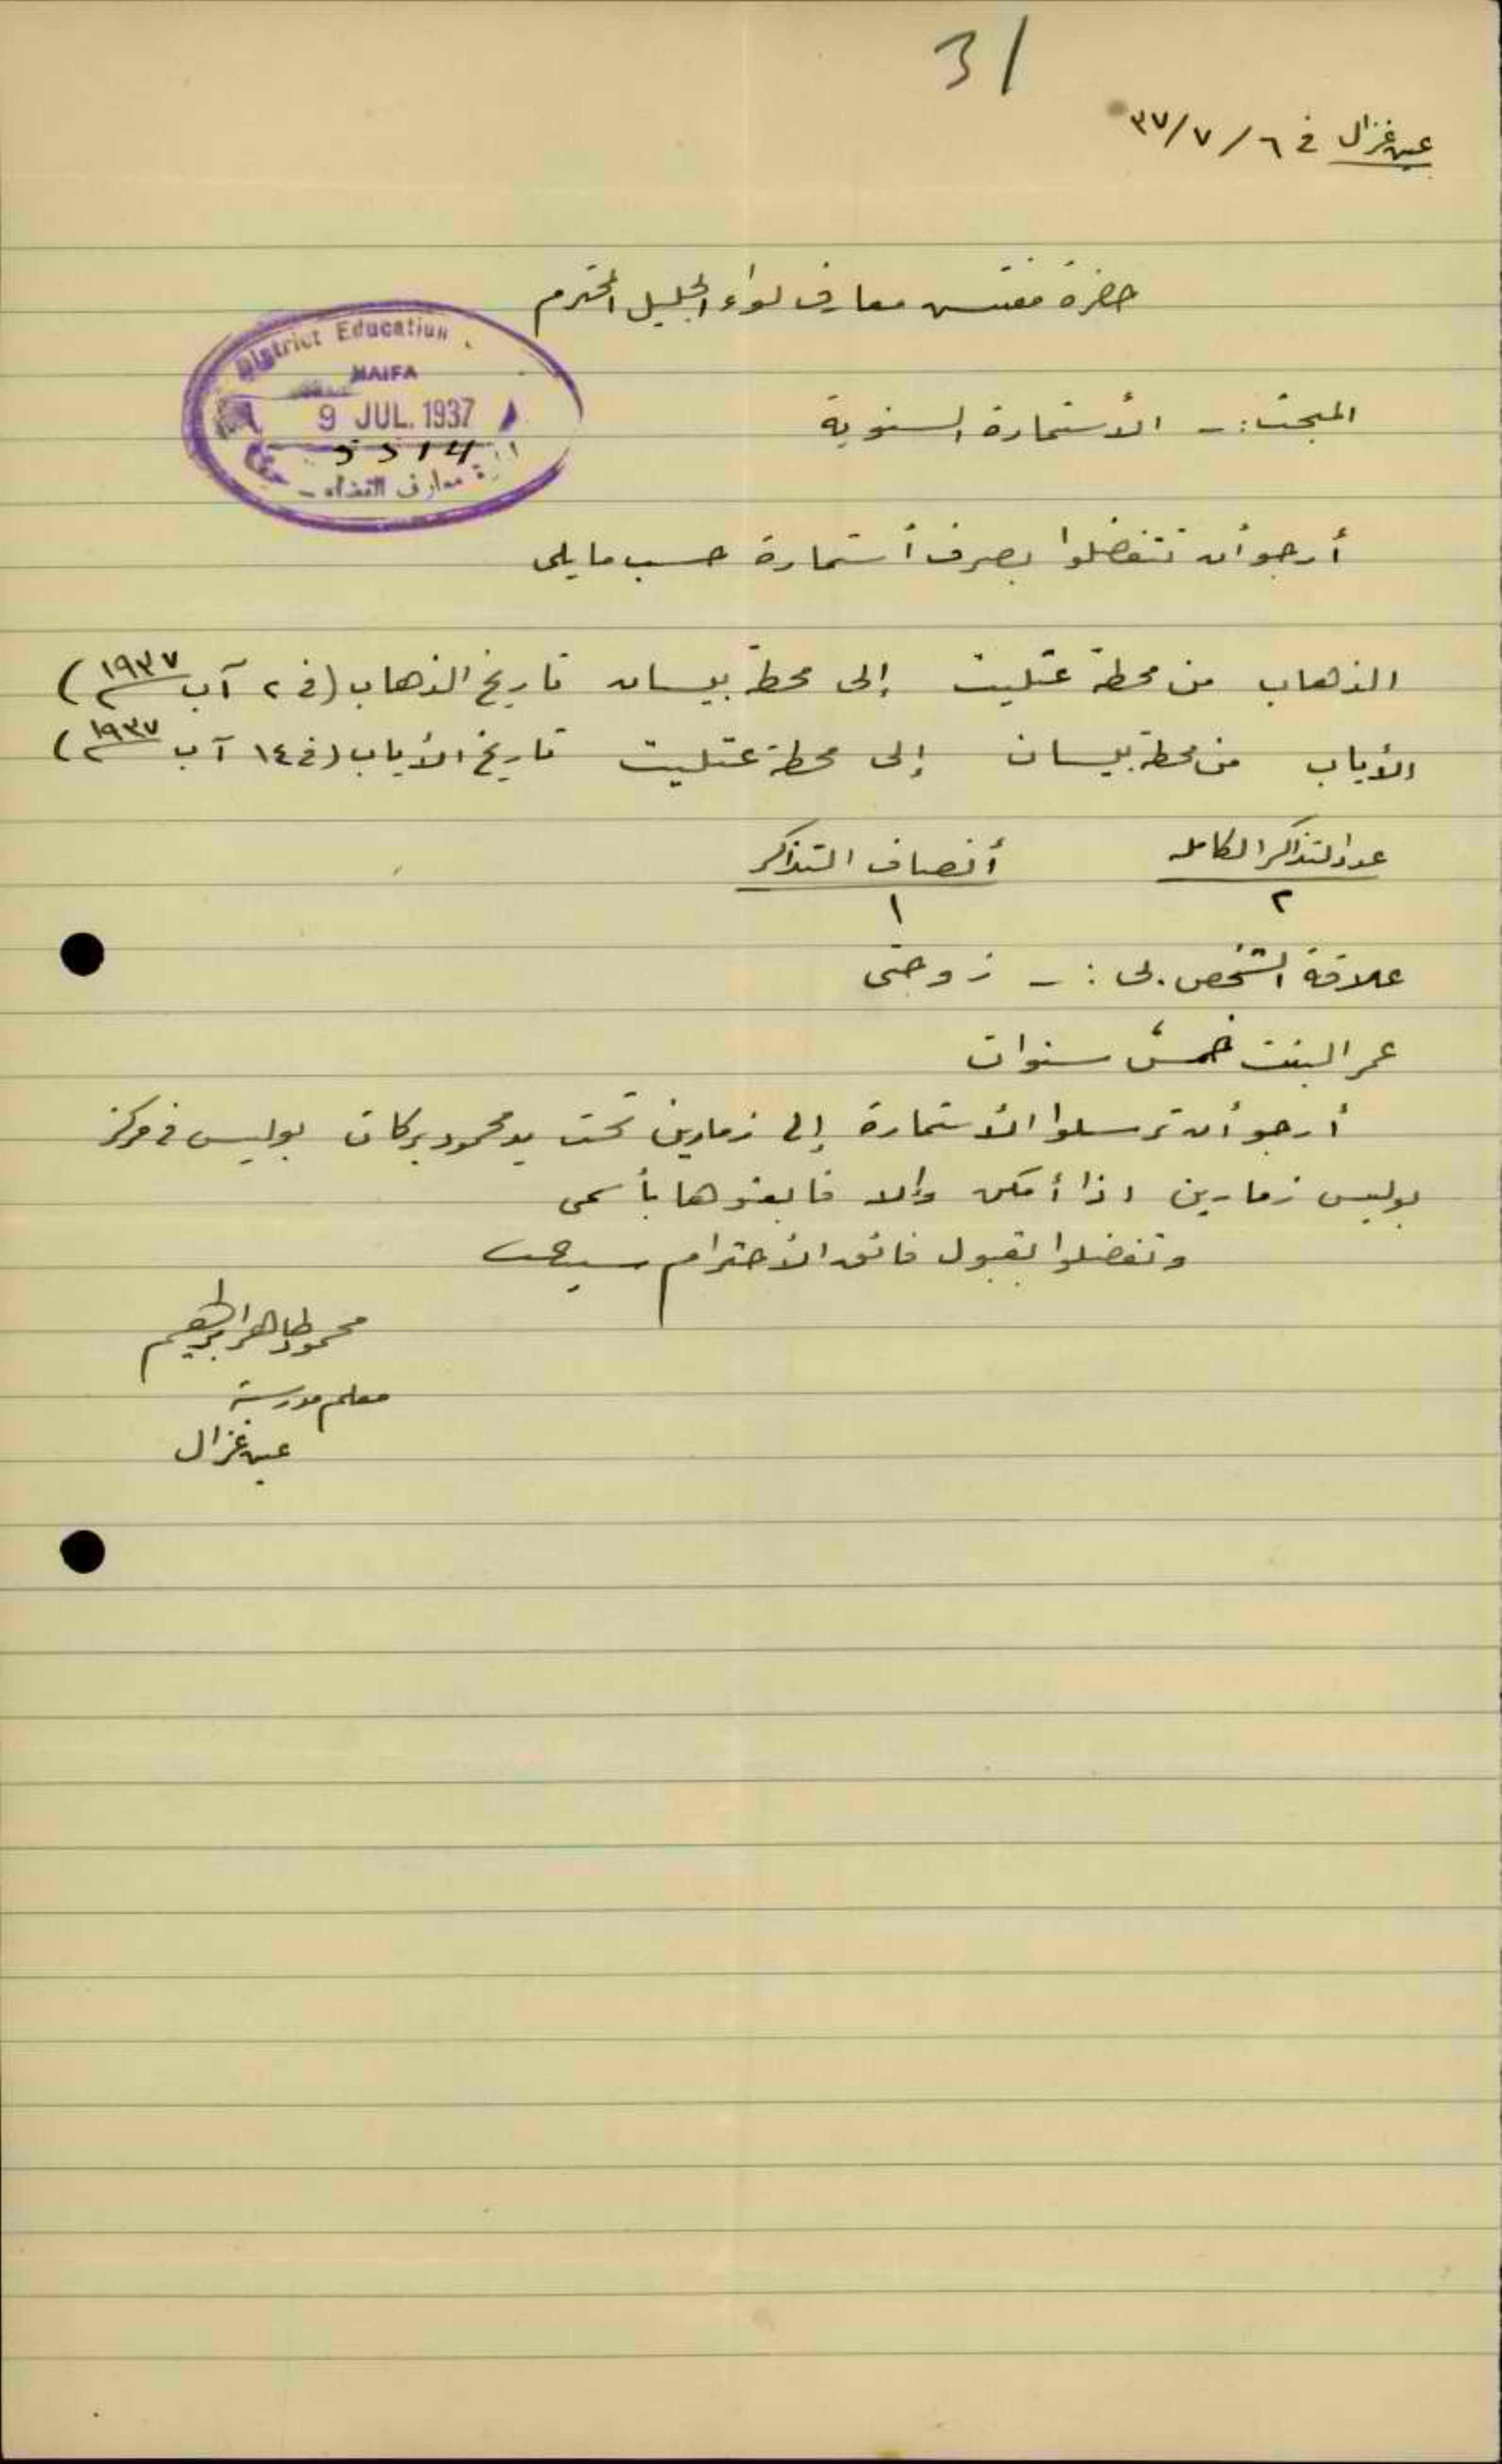 31
عين غزال في ٦/٧/٣٧
حضرة مفتش معارف لواء الجليل المحترم
District Education
HAIFA
9 JUL. 1937
5514
معارف القضاء -
المبحث :- الأستمارة السنوية
أرجو أن تتفضلوا بصرف أستمارة حسب ما يلى
الذهاب من محطة عتليت إلى محطة بيسان تاريخ الذهاب (في ٢ آب ١٩٣٧)
الأياب من محطة بيسان إلى محطة عتليت تاريخ الأياب (في ١٤ آب ١٩٣٧)
عدد التذاكر الكامله أنصاف التذاكر
٢ ١
علاقة الشخص بى :- زوجتى
عمر البنت خمس سنوات
أرجو أن ترسلوا الأستمارة إلى زمارين تحت يد محمود بركات بوليس في مركز
بوليس زمارين اذا أمكن وإلا فابعثوها بأسمى
وتفضلوا بقبول فائق الأحترام سيدى
محمود طاهر ابراهيم
معلم مدرسة
عين غزال